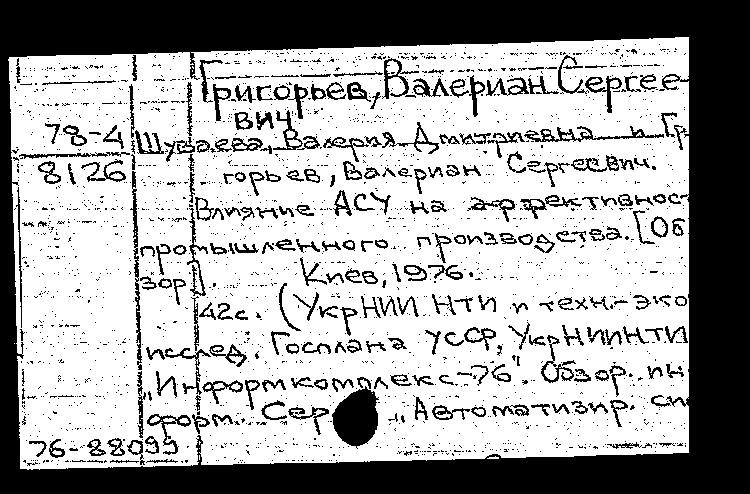 Григорьев, Валериан Сергее-
вич
78-4 Шуваева, Валерия Дмитриевна и Гр
8126 горьев, Валериан Сергеевич.
Влияние АСУ на эффективност
промышленного производства. [Об
зор]. Киев, 1976.
42с. (УкрНИИ НТИ и техн.-эко
исслед. Госплана УССР, УкрНИИНТИ
„Информкомплекс-76". Обзор. ин-
форм. Сер. „Автоматизир. сис
76-88099